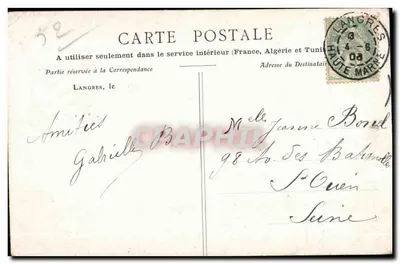 52
CARTE POSTALE
A utiliser seulement dans le service intérieur (France, Algérie et Tuni
Partie réservée à la Correspondance
Adresse du Destinatai
LANGRES, le
LANGRES
HAUTE MARNE
Amitiés
Gabrielle B
Melle Jeanne
98 Av. des Batignolles
St Ouen
Seine
CHAPITRE